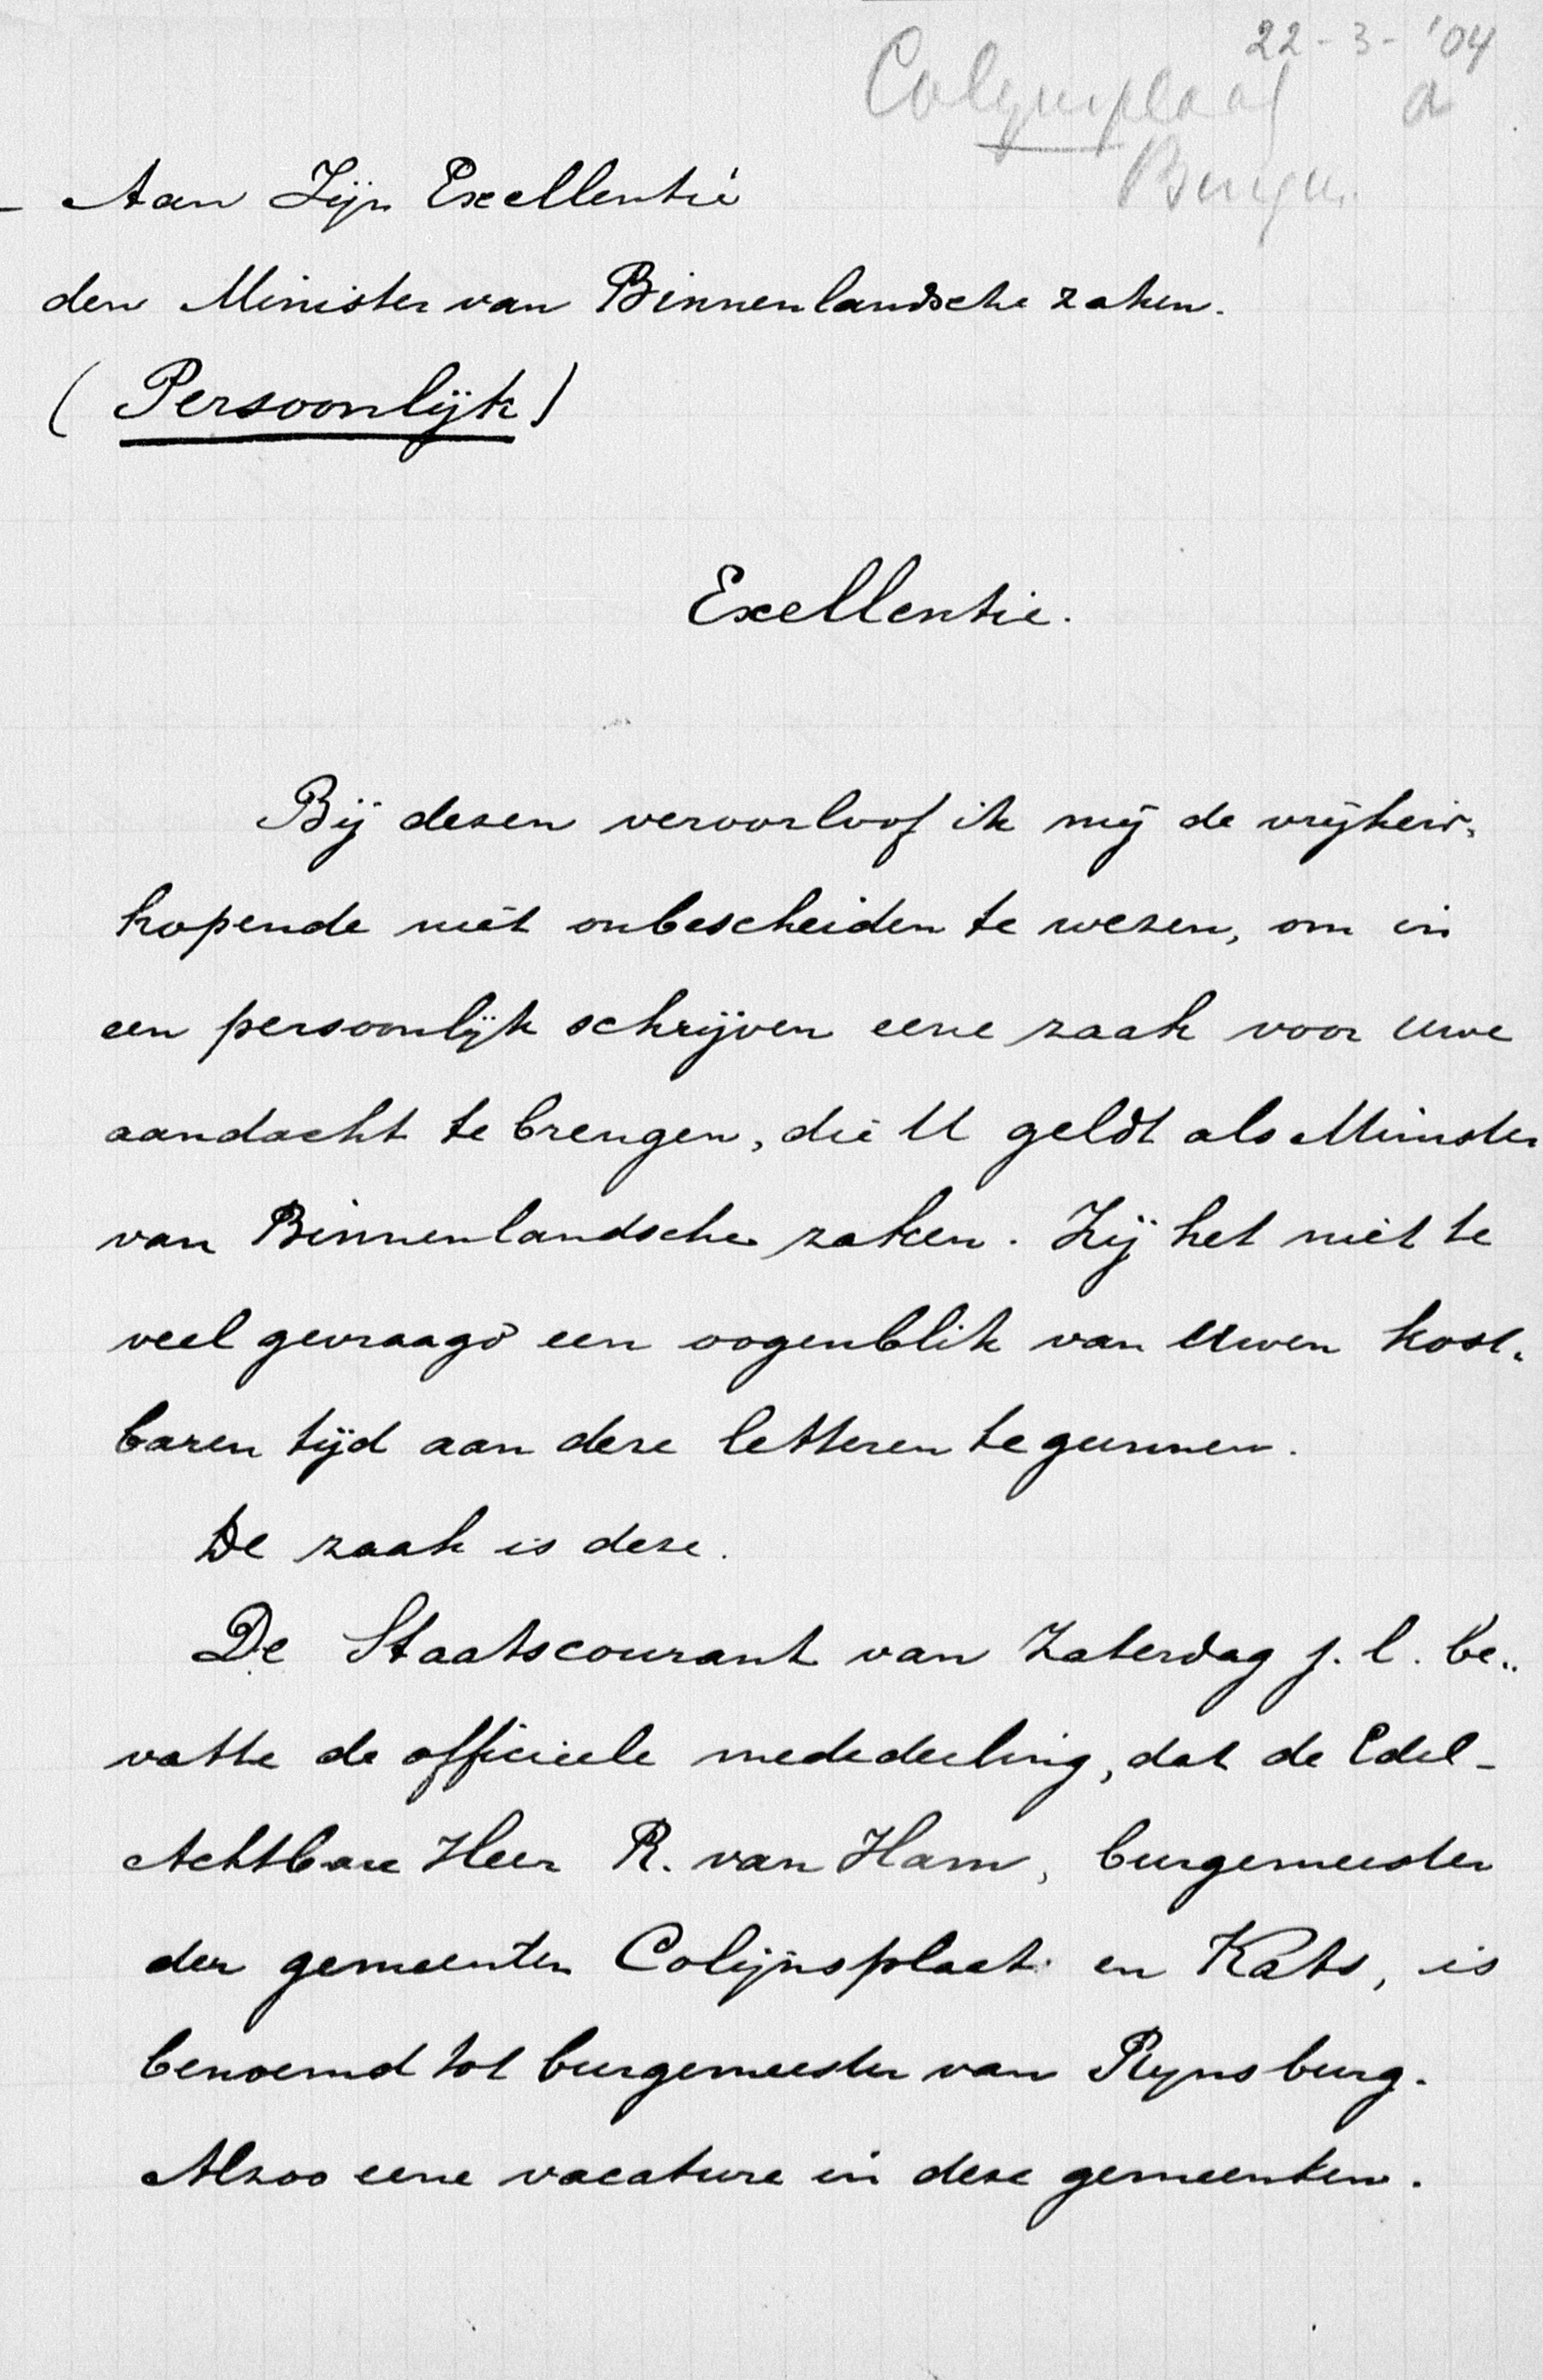 22-3-'04
Colynsplaat a
Burgm.
Aan Zijn Excellentie
den Minister van Binnenlandsche zaken.
(Persoonlijk)
Excellentie.
Bij dezen veroorloof ik mij de vrijheid,
hopende niet onbescheiden te wezen, om in
een persoonlijk schrijven eene zaak voor Uwe
aandacht te brengen, die U geldt als Minister
van Binnenlandsche zaken. Zij het niet te
veel gevraagd een oogenblik van Uwen kost-
baren tijd aan deze letteren te gunnen.
De zaak is deze.
De Staatscourant van Zaterdag j.l. be-
vatte de officieele mededeeling, dat de Edel-
Achtbare Heer R. van Ham, burgemeester
der gemeenten Colijnsplaat en Kats, is
benoemd tot burgemeester van Rynsburg.
Alzoo eene vacature in deze gemeenten.